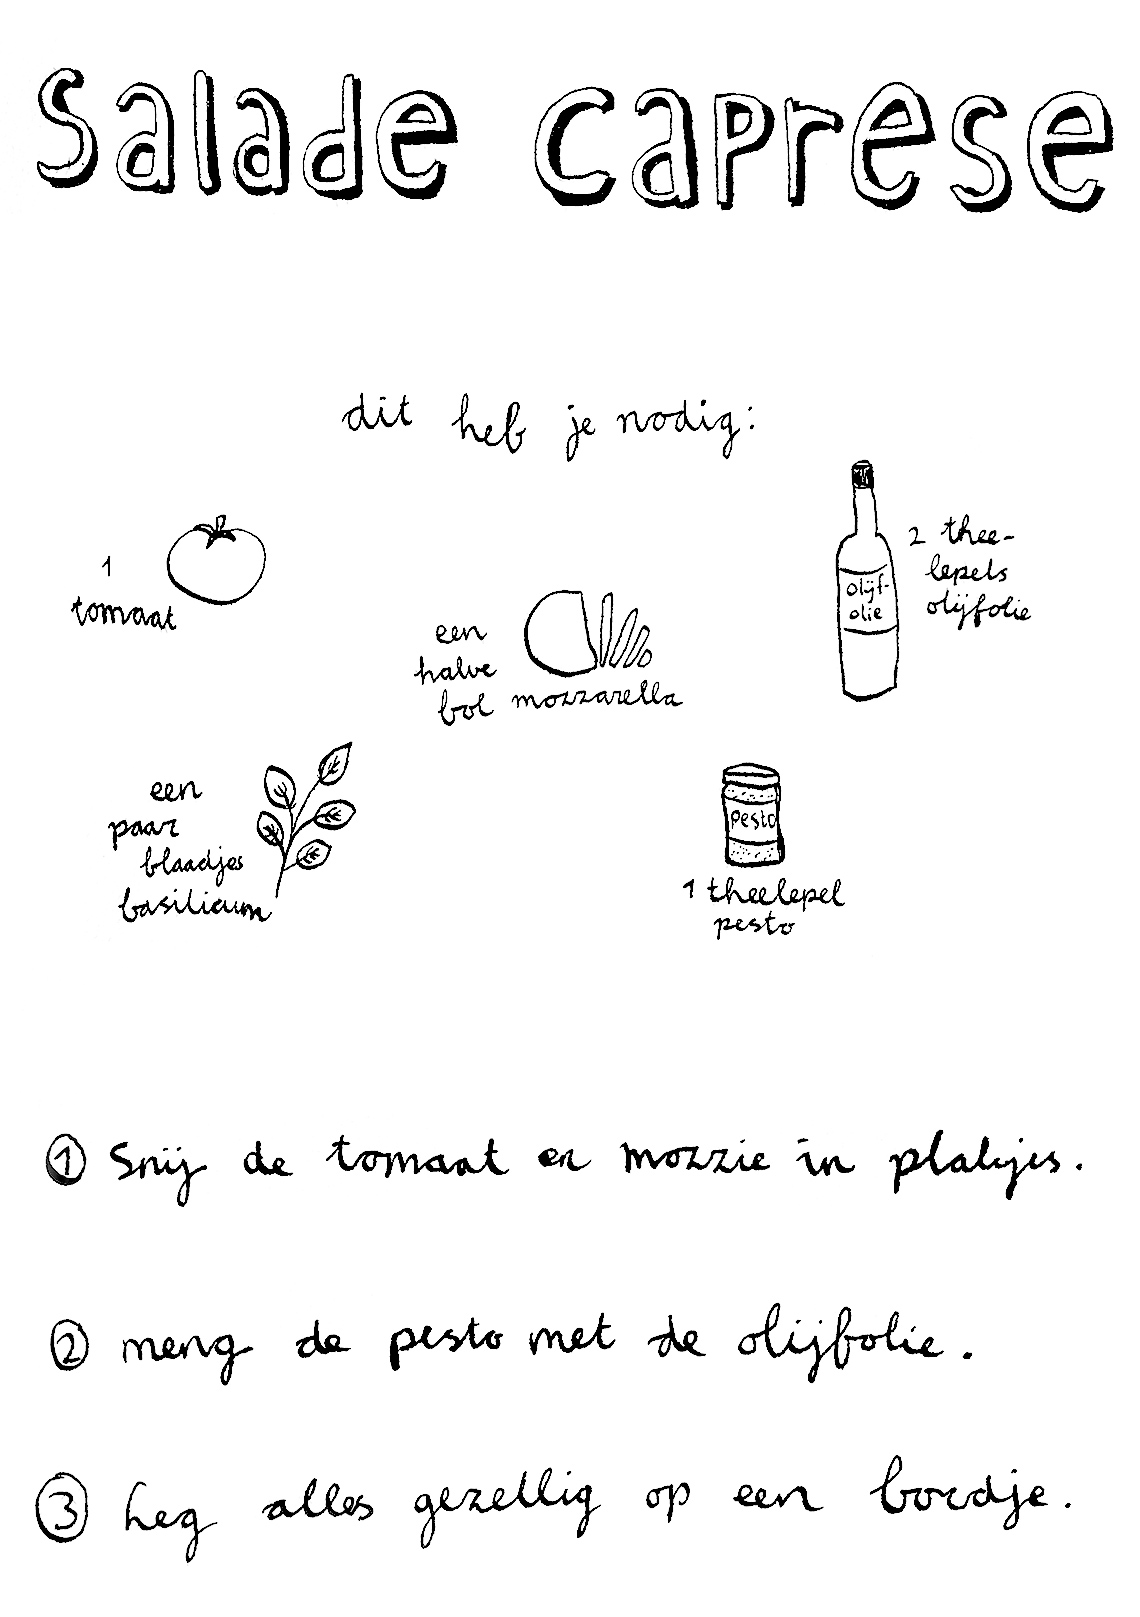 Salade caprese
dit heb je nodig:
1
tomaat
een
halve
bol mozzarella
olijf-
olie
2 thee-
lepels
olijfolie
een
paar
blaadjes
basilicum
pesto
1 theelepel
pesto
1 Snij de tomaat en mozzie in plakjes.
2 meng de pesto met de olijfolie.
3 leg alles gezellig op een bordje.